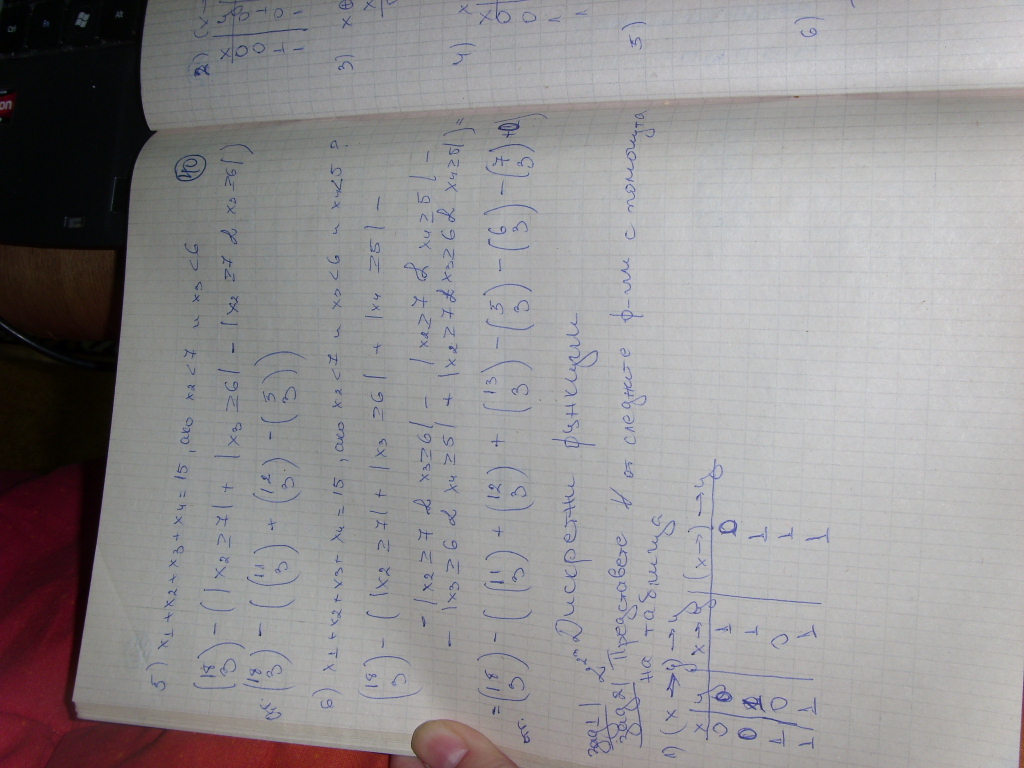 40
5) x1+x2+x3+x4=15, ако x2<7 и x3<6
(18 3) - (|x2≥7| + |x3≥6| - |x2≥7 & x3≥6|)
(18 3) - ((11 3) + (12 3) - (5 3))
6) x1+x2+x3+x4=15, ако x2<7 и x3<6 и x4<5?
(18 3) - (|x2≥7| + |x3≥6| + |x4≥5| -
- |x2≥7 & x3≥6| - |x2≥7 & x4≥5| -
- |x3≥6 & x4≥5| + |x2≥7 & x3≥6 & x4≥5|) =
= (18 3) - ((11 3) + (12 3) + (13 3) - (5 3) - (6 3) - (7 3) + 0)
Дискретни функции
зад 1|
зад 2| Представете от следните ф-ии с помощта
на таблица
1) (x→y)→y
x | y | x→y | (x→)→y
0 0 1 0
0 1 1 1
1 0 0 1
1 1 1 1
2) (x
x y
0 0
0 1
1 0
1 1
3) x
x
4) x
x
0 0
0
1
1
5)
6)